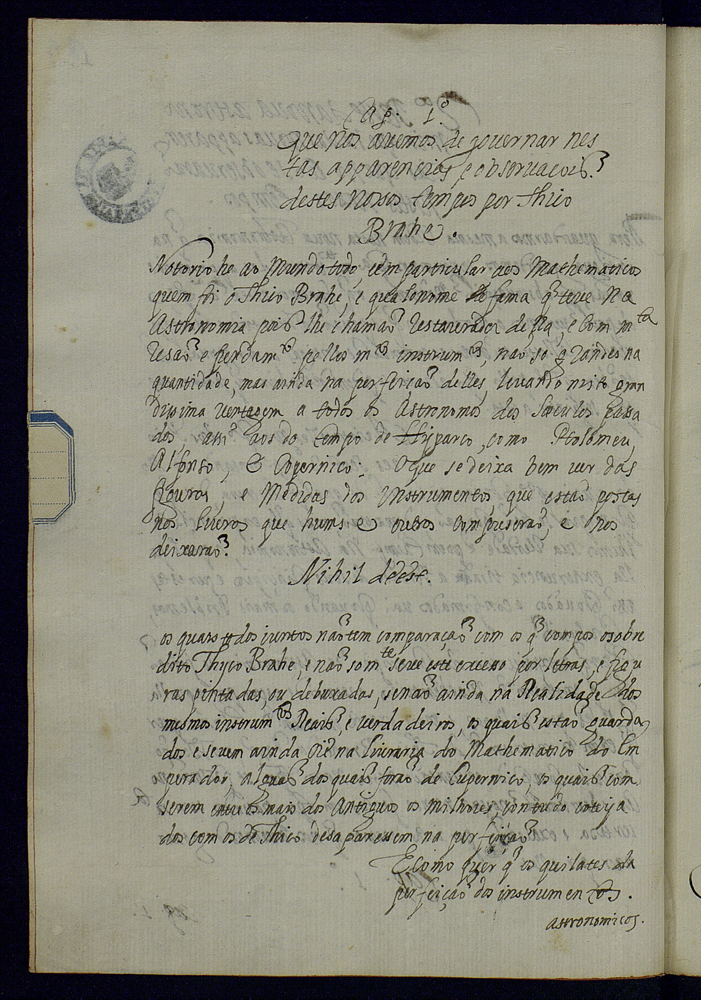 Cap. 1.º
que nos avemos de governar nes
tas apparencias, e observacois
destes nossos tempos por thico
Brahe.
Notorio he ao mundo todo, e em particular aos Mathematicos
quem foi o Thico Brahe, e qual o nome e fama q̃ teve na
Astronomia pois lhe chamaõ restaurador della, e com m.ta
resaõ e fundam.to pellos m.tos instrum.tos, naõ só grandes na
quantidade, mas ainda na perfeiçaõ delles, levando muito gran
dissima ventagem a todos os Astronomos dos seculos passa
dos, assi aos do tempo de Hyparco, como Ptolomeu,
Alfonso, & Copernico; O que se deixa bem ver das
figuras, e Medidas dos instrumentos que estaõ postas
nos livros que huns e outros compuseraõ, e nos
deixaraõ.
Nihil deest.
os quais todos juntos naõ tem comparaçaõ com os q̃ compos o sobre
dito Thyco Brahe, e naõ som.te se ve este excesso por letras, e figu
ras pintadas, ou debuxadas, senaõ ainda na Realidade dos
mesmos instrum.tos Reais, e verdadeiros, os quais estaõ guarda
dos e se vem ainda oie na livraria do Mathematico do Em
perador, alguns dos quais foraõ de Cupernico, os quais com
serem entre os mais dos Antiguos os milhores, contudo coteja
dos com os de Thico desaparessem na perfeiçaõ
E como quer q̃ os quilates da
perfeiçaõ dos instrumentos.
astronomicos.